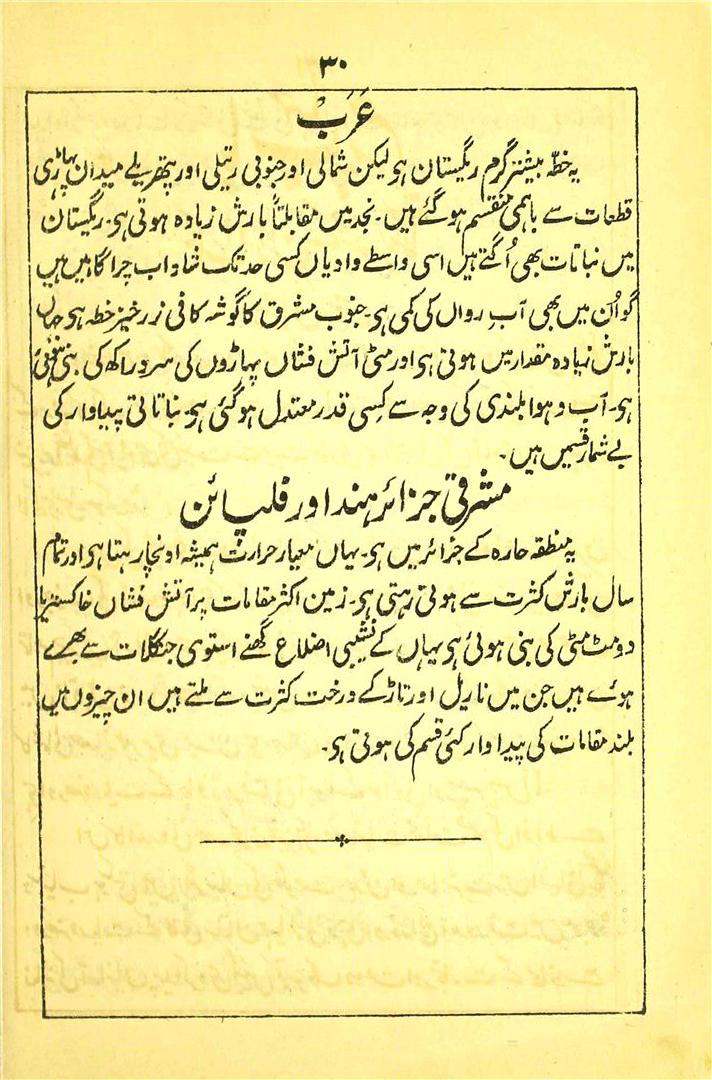 ۳۰
عَرَبْ
یہ خطّہ بیشتر گرم ریگستان ہو لیکن شمالی اور جنوبی رتیلی اور پتھریلے میدان پہاڑی
قطعات سے باہمی منقسم ہو گئے ہیں۔ نجد میں مقابلتاً بارش زیادہ ہوتی ہو۔ ریگستان
میں نباتات بھی اُگتے ہیں اسی واسطے وادیاں کسی حد تک شاداب چراگاہیں ہیں
گو اُن میں بھی آبِ رواں کی کمی ہو۔ جنوب مشرق کا گوشہ کافی زرخیز خطہ ہو جہاں
بارش زیادہ مقدار میں ہوتی ہو اور مٹی آتش فشاں پہاڑوں کی سرد راکھ کی بنی ہوئی
ہو۔ آب و ہوا بلندی کی وجہ سے کِسی قدر معتدل ہو گئی ہو۔ نباتاتی پیداوار کی
بے شمار قسمیں ہیں۔
مشرقی جزائر ہند اور فلپائن
یہ منطقہ حارہ کے جزائر میں ہو۔ یہاں معیار حرارت ہمیشہ اونچا رہتا ہو اور تمام
سال بارش کثرت سے ہوتی رہتی ہو۔ زمین اکثر مقامات پر آتش فشاں خاکستر یا
دومٹ مٹی کی بنی ہوئی ہو یہاں کے نشیبی اضلاع گھنے استوی جنگلات سے بھرے
ہوئے ہیں جن میں ناریل اور تاڑ کے درخت کثرت سے ملتے ہیں ان چیزوں میں
بلند مقامات کی پیداوار کئی قسم کی ہوتی ہو۔